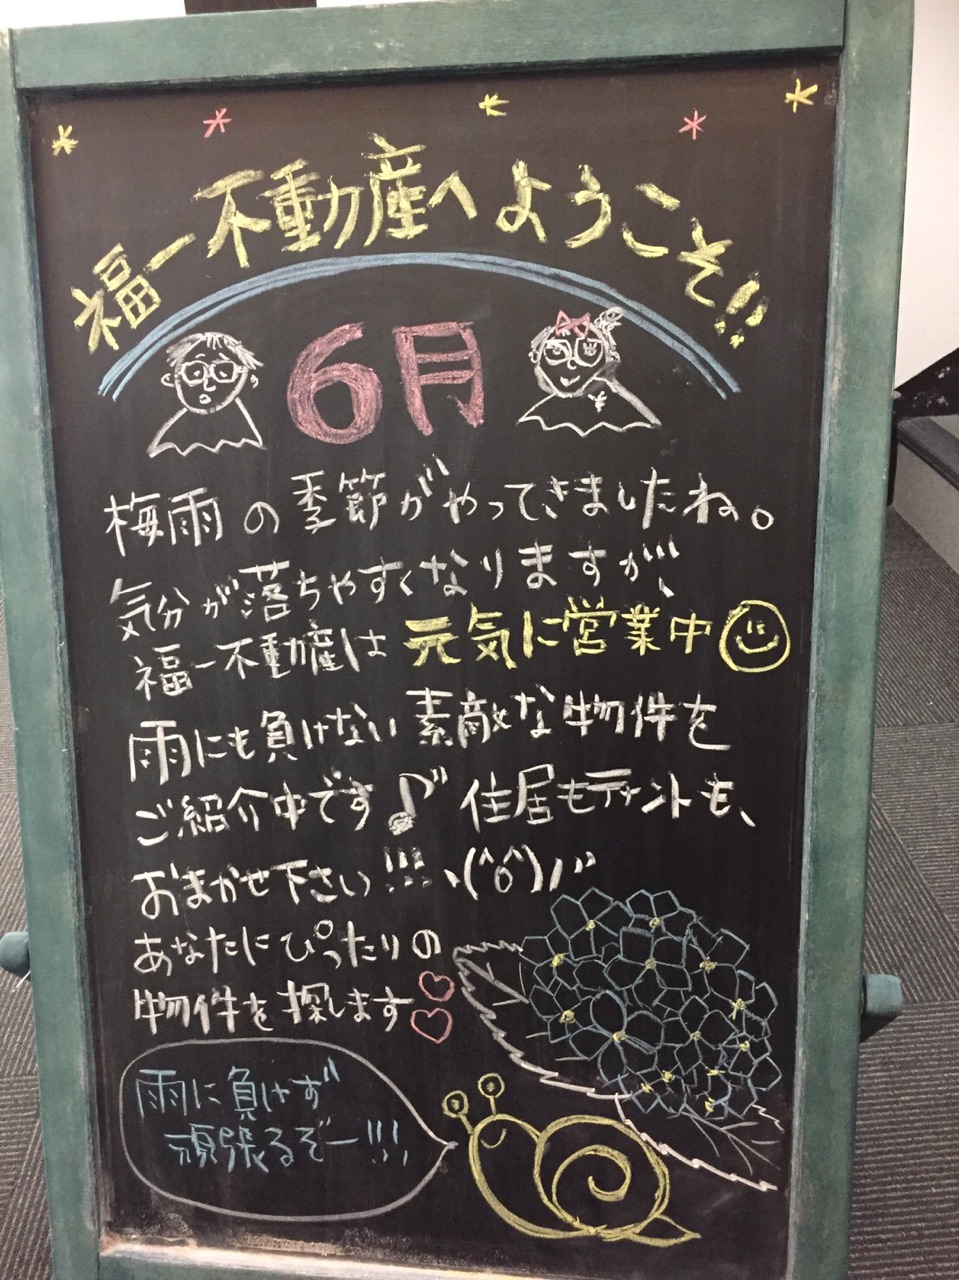 福一不動産へようこそ!!
6月
梅雨の季節がやってきましたね。
気分が落ちやすくなりますが、
福一不動産は元気に営業中
雨にも負けない素敵な物件を
ご紹介中です♪住居もテナントも、
おまかせ下さい!!!ヽ(^o^)ノ"
あなたにぴったりの
物件を探します♡♡
雨に負けず
頑張るぞー!!!